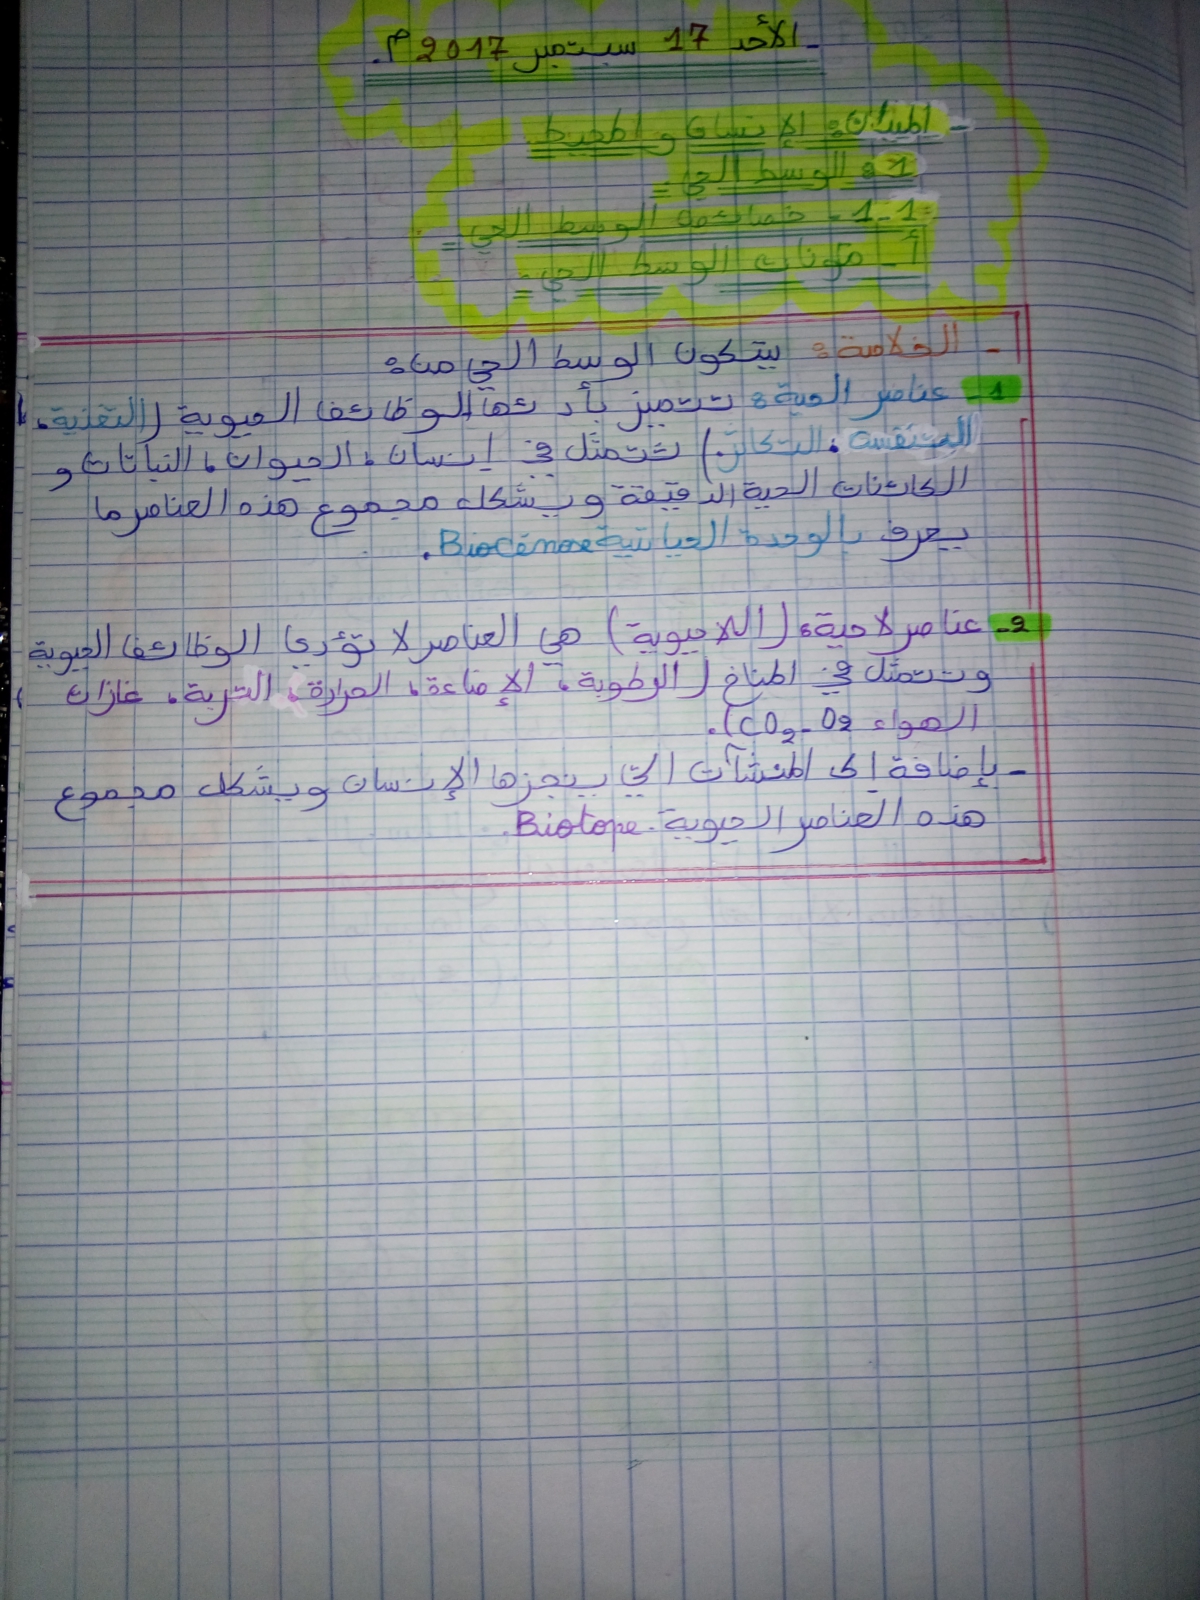 - الأحد 17 سبتمبر 2017 م.
- الميدان: الإنسان و المحيط.
1: الوسط الحي =
1-1- خصائص الوسط الحي =
أ- مكونات الوسط الحي =
- الخلاصة: يتكون الوسط الحي من:
1- عناصر الحية: تتميز بأدائها الوظائف الحيوية (التغذية،
التنفس، التكاثر.) تتمثل في إنسان، الحيوان، النباتات و
الكائنات الحية الدقيقة ويشكل مجموع هذه العناصر ما
يعرف بالوحدة الحياتية Biocénose.
2- عناصر لاحية: (اللاحيوية) هي العناصر لا تؤدي الوظائف الحيوية
وتتمثل في المناخ (الرطوبة، الإضاءة، الحرارة، التربة، غازات
الهواء CO₂-O₂).
- بإضافة إلى المنشآت التي ينجزها الإنسان ويشكل مجموع
هذه العناصر الحيوية. Biotope.